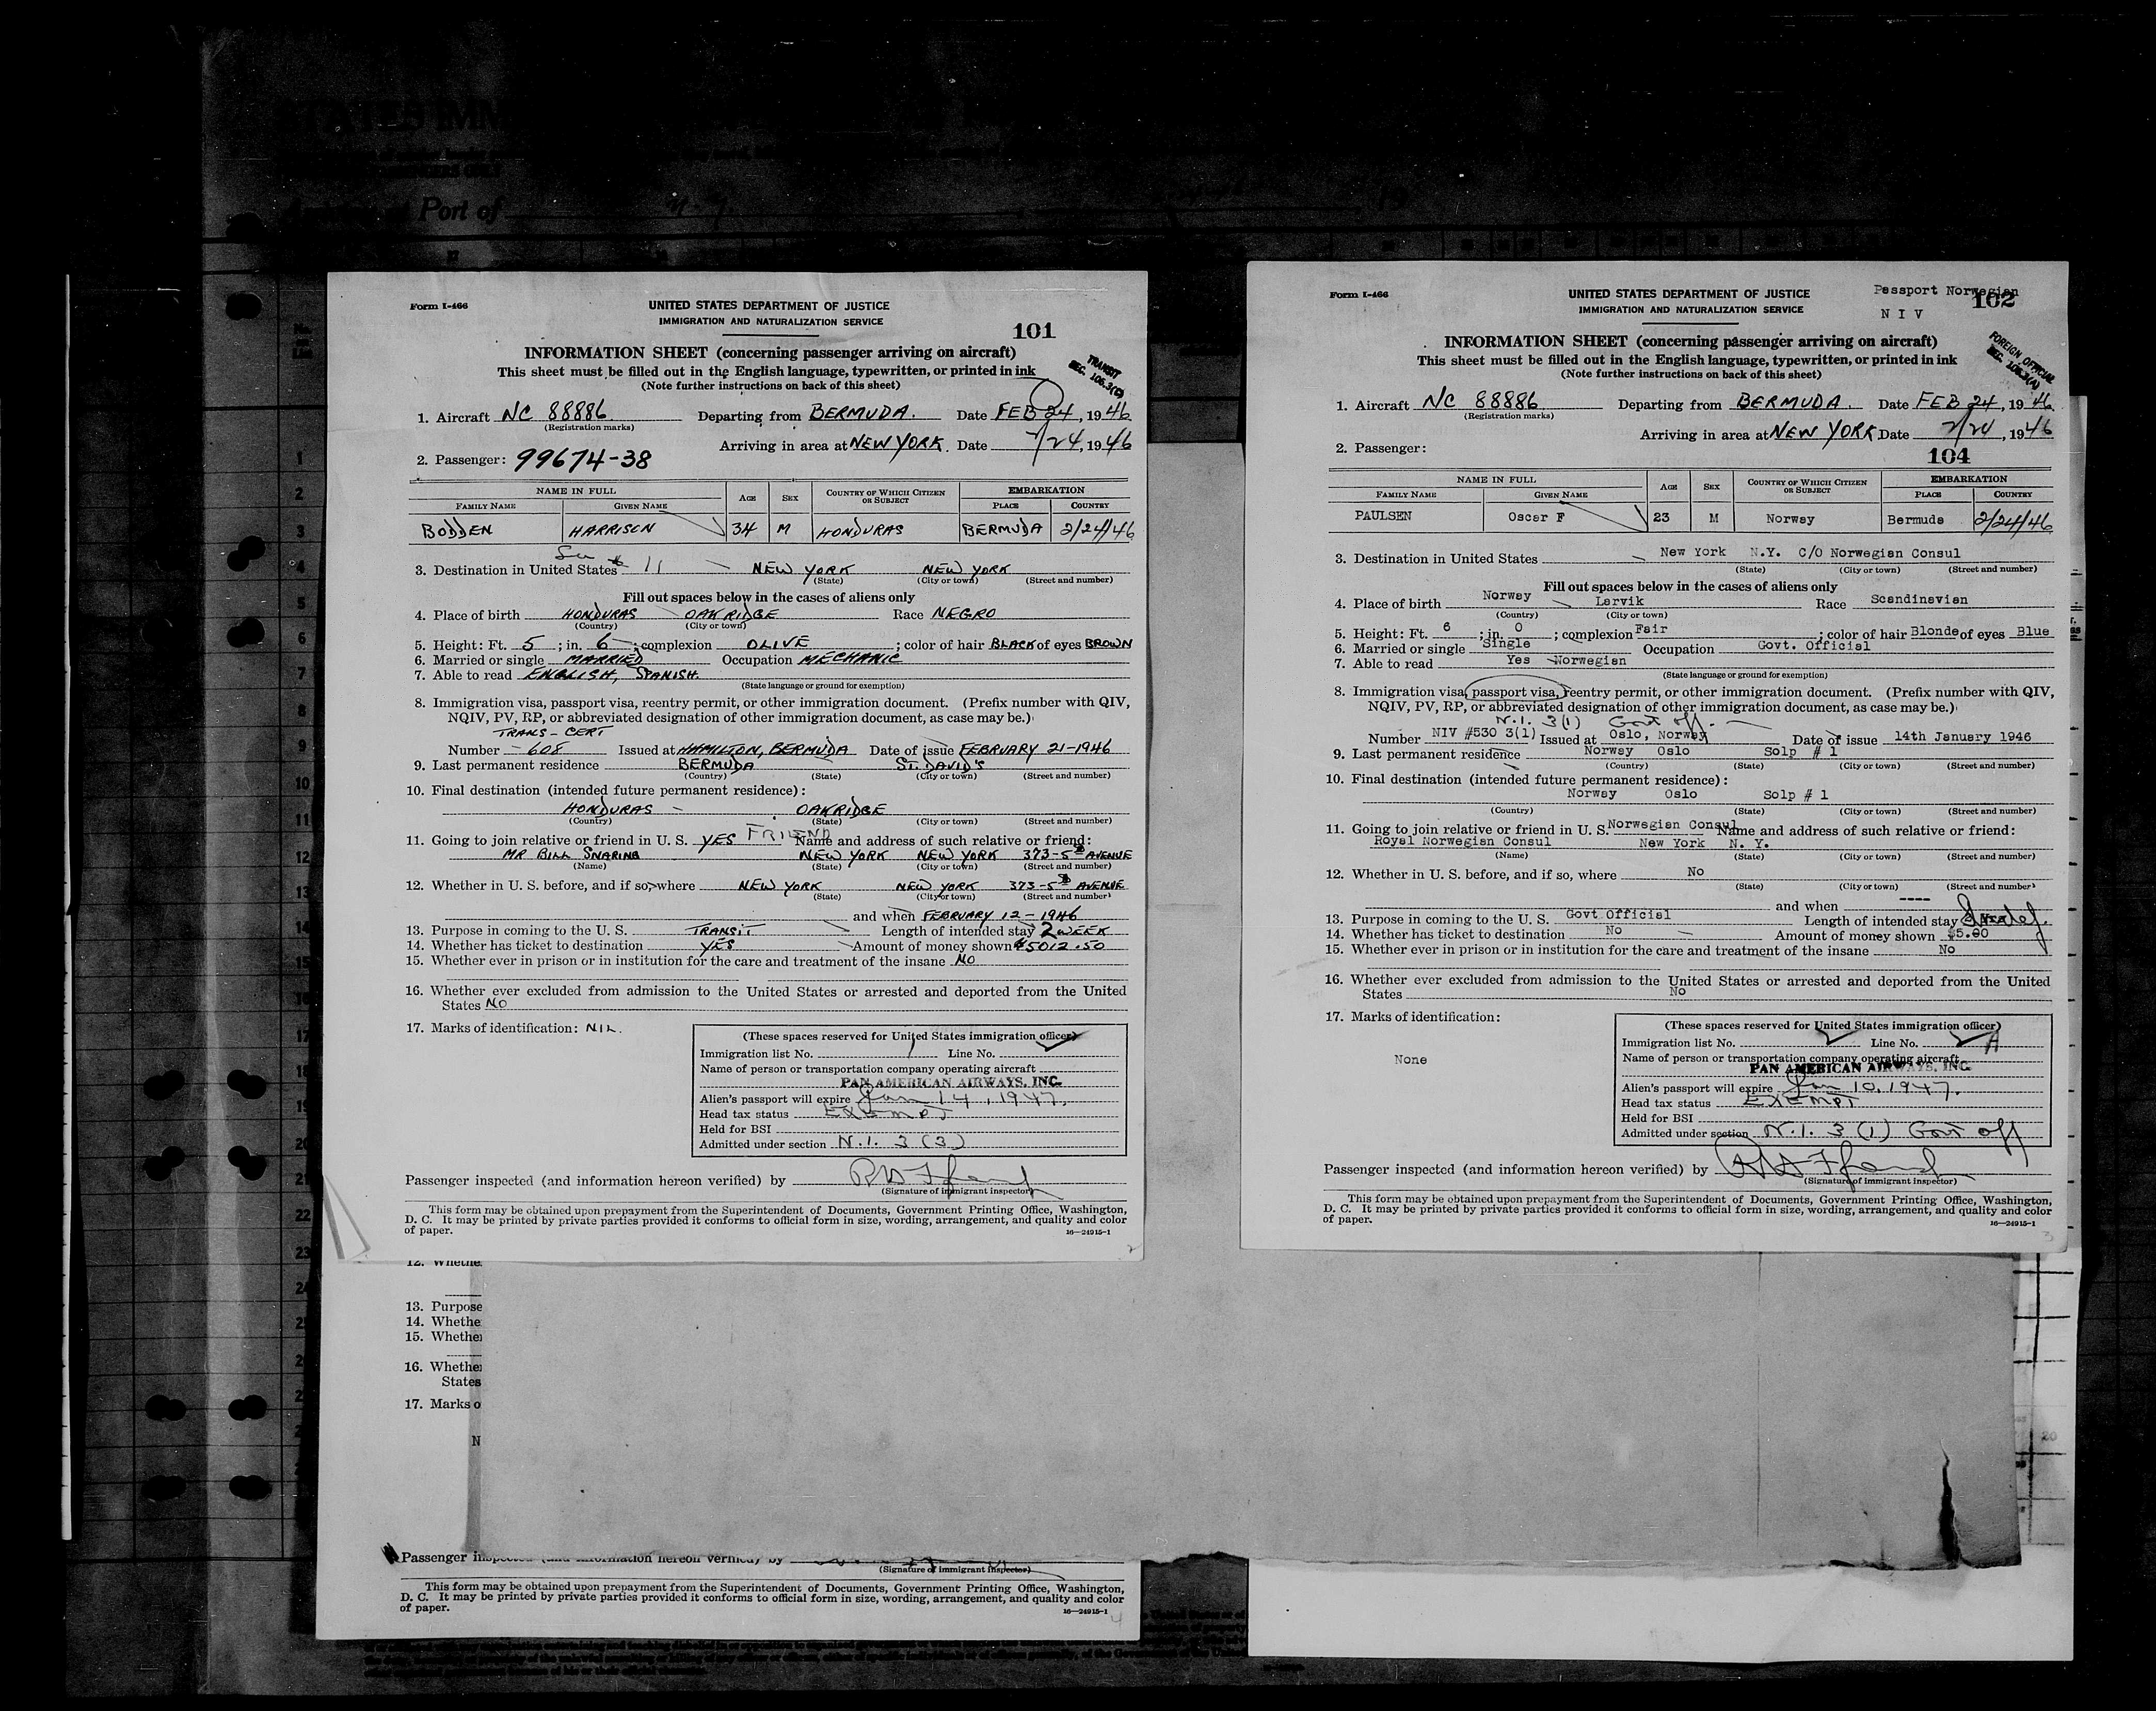 Port of
Form I-466
UNITED STATES DEPARTMENT OF JUSTICE
IMMIGRATION AND NATURALIZATION SERVICE
101
INFORMATION SHEET (concerning passenger arriving on aircraft)
This sheet must be filled out in the English language, typewritten, or printed in ink
(Note further instructions on back of this sheet)
TRANSIT
SEC. 106.3(C)
1. Aircraft NC 88886 Departing from BERMUDA. Date FEB 24, 1946
(Registration marks)
Arriving in area at NEW YORK. Date 2/24, 1946
2. Passenger: 99674-38
NAME IN FULL AGE SEX COUNTRY OF WHICH CITIZEN OR SUBJECT EMBARKATION
FAMILY NAME GIVEN NAME PLACE COUNTRY
BODDEN HARRISON 34 M HONDURAS BERMUDA 2/24/46
3. Destination in United States 11 NEW YORK NEW YORK
(State) (City or town) (Street and number)
Fill out spaces below in the cases of aliens only
4. Place of birth HONDURAS OAKRIDGE Race NEGRO
(Country) (City or town)
5. Height: Ft. 5; in. 6; complexion OLIVE; color of hair BLACK of eyes BROWN
6. Married or single MARRIED Occupation MECHANIC
7. Able to read ENGLISH, SPANISH
(State language or ground for exemption)
8. Immigration visa, passport visa, reentry permit, or other immigration document. (Prefix number with QIV,
NQIV, PV, RP, or abbreviated designation of other immigration document, as case may be.)
TRANS - CERT
Number - 608 Issued at HAMILTON, BERMUDA Date of issue FEBRUARY 21-1946
9. Last permanent residence BERMUDA ST. DAVID'S
(Country) (State) (City or town) (Street and number)
10. Final destination (intended future permanent residence):
HONDURAS - OAKRIDGE
(Country) (State) (City or town) (Street and number)
11. Going to join relative or friend in U. S. YES FRIEND Name and address of such relative or friend:
MR BILL SNARING NEW YORK NEW YORK 373-5th AVENUE
(Name) (State) (City or town) (Street and number)
12. Whether in U. S. before, and if so, where NEW YORK NEW YORK 373-5th AVENUE
(State) (City or town) (Street and number)
and when FEBRUARY 12-1946
13. Purpose in coming to the U. S. TRANSIT Length of intended stay 2 WEEK
14. Whether has ticket to destination YES Amount of money shown $5012.50
15. Whether ever in prison or in institution for the care and treatment of the insane NO
16. Whether ever excluded from admission to the United States or arrested and deported from the United
States NO
17. Marks of identification: NIL.
(These spaces reserved for United States immigration officer)
Immigration list No. 1 Line No.
Name of person or transportation company operating aircraft
PAN AMERICAN AIRWAYS, INC.
Alien's passport will expire Jan 14, 1947.
Head tax status EXEMPT
Held for BSI
Admitted under section N.I. 3 (3)
Passenger inspected (and information hereon verified) by
(Signature of immigrant inspector)
This form may be obtained upon prepayment from the Superintendent of Documents, Government Printing Office, Washington,
D. C. It may be printed by private parties provided it conforms to official form in size, wording, arrangement, and quality and color
of paper.
16—24915-1
2
13. Purpose
14. Whethe
15. Whethe
16. Whethe
States
17. Marks o
N
Passenger inspected (and information hereon verified) by
(Signature of immigrant inspector)
This form may be obtained upon prepayment from the Superintendent of Documents, Government Printing Office, Washington,
D. C. It may be printed by private parties provided it conforms to official form in size, wording, arrangement, and quality and color
of paper.
16—24915-1
4
Form I-466
UNITED STATES DEPARTMENT OF JUSTICE
IMMIGRATION AND NATURALIZATION SERVICE
Passport Norwegian
N I V
102
INFORMATION SHEET (concerning passenger arriving on aircraft)
This sheet must be filled out in the English language, typewritten, or printed in ink
(Note further instructions on back of this sheet)
FOREIGN OFFICIAL
SEC. 106.3(A)
1. Aircraft NC 88886 Departing from BERMUDA. Date FEB 24, 1946
(Registration marks)
Arriving in area at NEW YORK Date 2/24, 1946
2. Passenger: 104
NAME IN FULL AGE SEX COUNTRY OF WHICH CITIZEN OR SUBJECT EMBARKATION
FAMILY NAME GIVEN NAME PLACE COUNTRY
PAULSEN Oscar F 23 M Norway Bermuda 2/24/46
3. Destination in United States New York N.Y. C/O Norwegian Consul
(State) (City or town) (Street and number)
Fill out spaces below in the cases of aliens only
4. Place of birth Norway Larvik Race Scandinavian
(Country) (City or town)
5. Height: Ft. 6; in. 0; complexion Fair; color of hair Blonde of eyes Blue
6. Married or single Single Occupation Govt. Official
7. Able to read Yes Norwegian
(State language or ground for exemption)
8. Immigration visa, passport visa, reentry permit, or other immigration document. (Prefix number with QIV,
NQIV, PV, RP, or abbreviated designation of other immigration document, as case may be.)
N.I. 3(1) Govt off.
Number NIV #530 3(1) Issued at Oslo, Norway Date of issue 14th January 1946
9. Last permanent residence Norway Oslo Solp # 1
(Country) (State) (City or town) (Street and number)
10. Final destination (intended future permanent residence):
Norway Oslo Solp # 1
(Country) (State) (City or town) (Street and number)
11. Going to join relative or friend in U. S. Norwegian Consul Name and address of such relative or friend:
Royal Norwegian Consul New York N. Y.
(Name) (State) (City or town) (Street and number)
12. Whether in U. S. before, and if so, where No
(State) (City or town) (Street and number)
and when ----
13. Purpose in coming to the U. S. Govt Official Length of intended stay
14. Whether has ticket to destination No Amount of money shown $5.00
15. Whether ever in prison or in institution for the care and treatment of the insane No
16. Whether ever excluded from admission to the United States or arrested and deported from the United
States No
17. Marks of identification:
None
(These spaces reserved for United States immigration officer)
Immigration list No. Line No. A
Name of person or transportation company operating aircraft
PAN AMERICAN AIRWAYS, INC.
Alien's passport will expire Jan 10, 1947.
Head tax status EXEMPT
Held for BSI
Admitted under section N.I. 3 (1) Govt off
Passenger inspected (and information hereon verified) by
(Signature of immigrant inspector)
This form may be obtained upon prepayment from the Superintendent of Documents, Government Printing Office, Washington,
D. C. It may be printed by private parties provided it conforms to official form in size, wording, arrangement, and quality and color
of paper.
16—24915-1
3